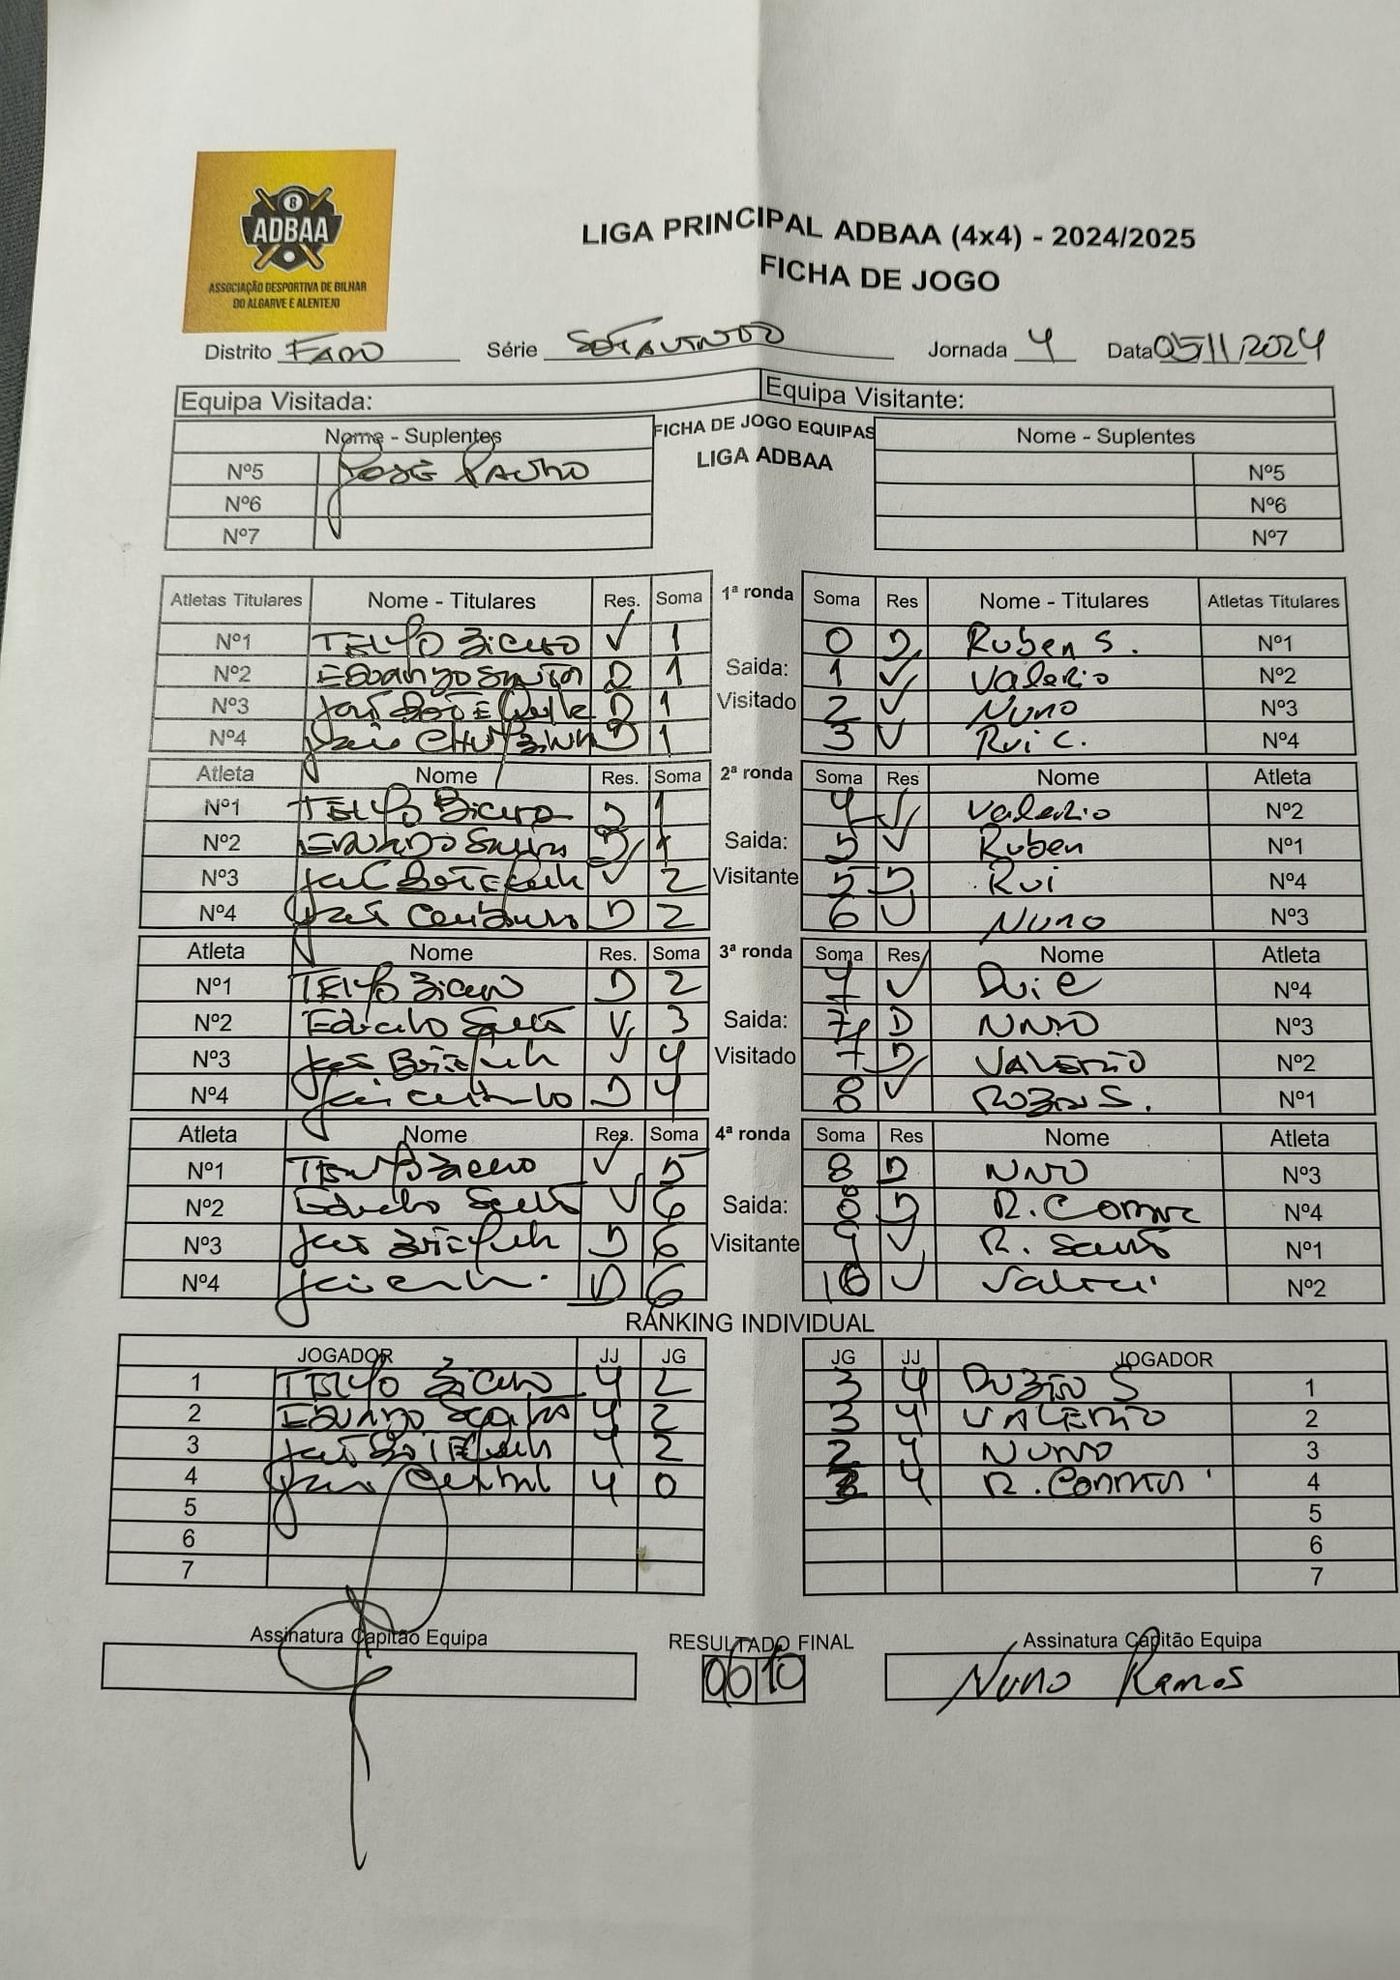 8
ADBAA
ASSOCIAÇÃO DESPORTIVA DE BILHAR
DO ALGARVE E ALENTEJO
LIGA PRINCIPAL ADBAA (4x4) - 2024/2025
FICHA DE JOGO
Distrito FARO Série SOTAVENTO Jornada 4 Data 05/11/2024
Equipa Visitada: Equipa Visitante:
Nome - Suplentes FICHA DE JOGO EQUIPAS Nome - Suplentes
LIGA ADBAA
Nº5 JOSÉ Nº5
Nº6 Nº6
Nº7 Nº7
Atletas Titulares Nome - Titulares Res. Soma 1ª ronda Soma Res Nome - Titulares Atletas Titulares
Nº1 TELMO V 1 0 D Ruben S. Nº1
Nº2 EDUARDO D 1 Saida: 1 V Valerio Nº2
Nº3 D 1 Visitado 2 V NUNO Nº3
Nº4 D 1 3 V Rui C. Nº4
Atleta Nome Res. Soma 2ª ronda Soma Res Nome Atleta
Nº1 TELMO D 1 4 V Valerio Nº2
Nº2 EDUARDO D 1 Saida: 5 V Ruben Nº1
Nº3 V 2 Visitante 5 D Rui Nº4
Nº4 D 2 6 V NUNO Nº3
Atleta Nome Res. Soma 3ª ronda Soma Res Nome Atleta
Nº1 TELMO D 2 7 V Rui C Nº4
Nº2 Eduardo V 3 Saida: 7 D NUNO Nº3
Nº3 V 4 Visitado 7 D VALERIO Nº2
Nº4 D 4 8 V RUBEN S. Nº1
Atleta Nome Res. Soma 4ª ronda Soma Res Nome Atleta
Nº1 TELMO V 5 8 D NUNO Nº3
Nº2 Eduardo V 6 Saida: 8 D R. Nº4
Nº3 D 6 Visitante 9 V R. Nº1
Nº4 D 6 10 V Nº2
RANKING INDIVIDUAL
JOGADOR JJ JG JG JJ JOGADOR
1 TELMO 4 2 3 4 RUBEN S 1
2 EDUARDO 4 2 3 4 VALERIO 2
3 4 2 2 4 NUNO 3
4 4 0 4 R. 4
5 5
6 6
7 7
Assinatura Capitão Equipa RESULTADO FINAL Assinatura Capitão Equipa
06 10 Nuno Ramos